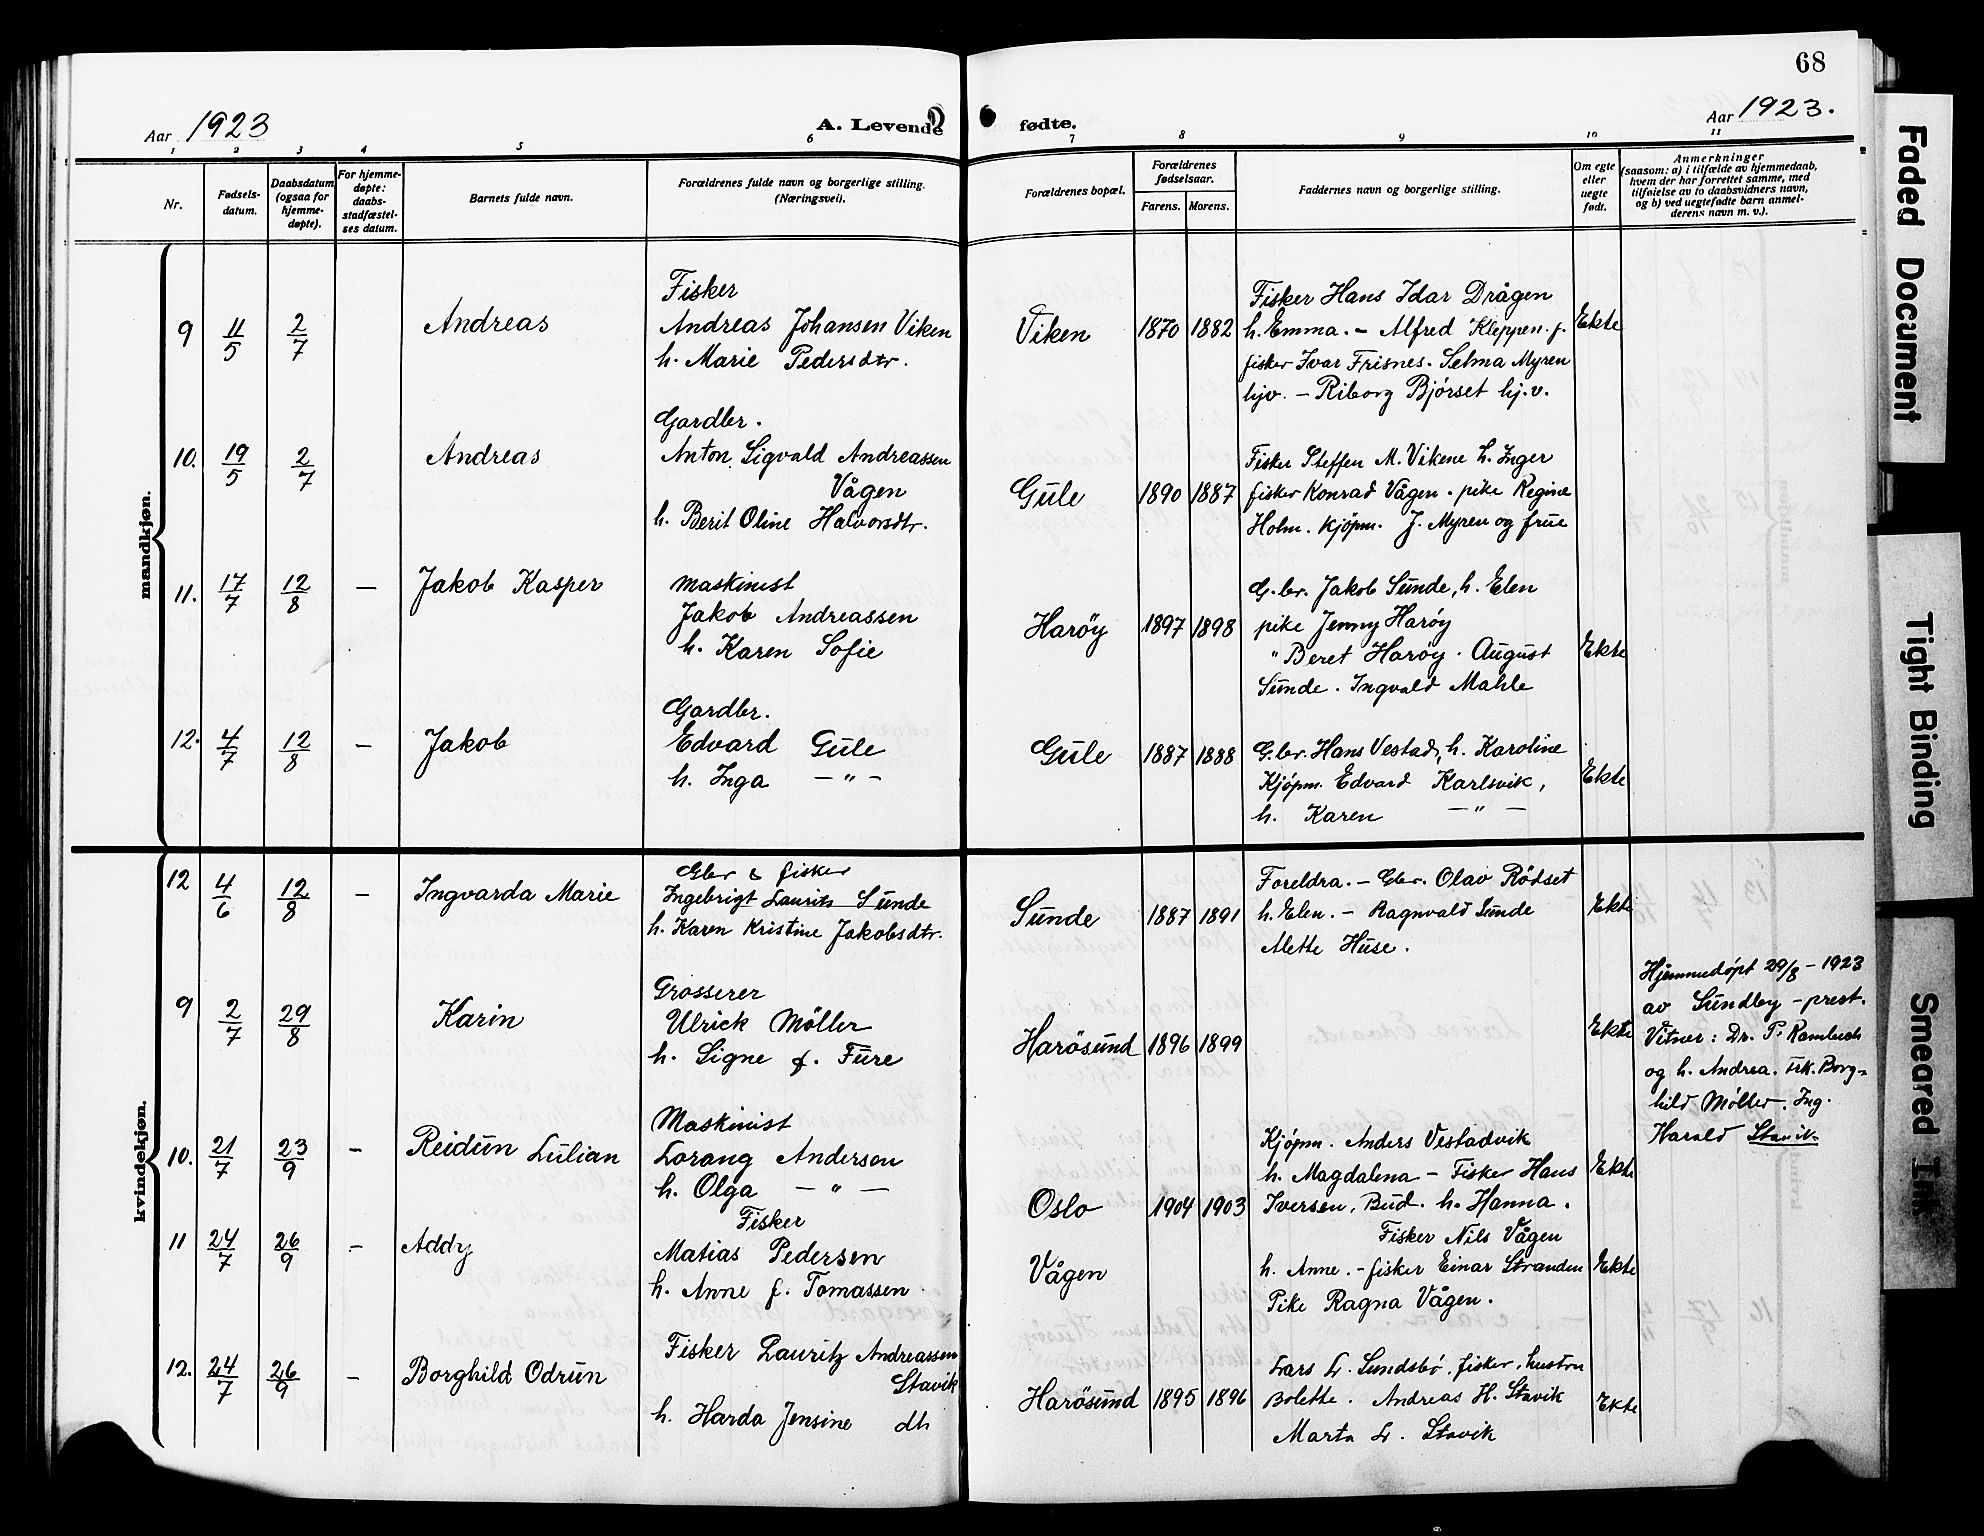 68
Aar 1923
A. Levende fødte.
Aar 1923.
1 2 3 4 5 6 7 8 9 10 11
Nr.
Fødsels-
datum.
Daabsdatum
(ogsaa for
hjemme-
døpte).
For hjemme-
døpte:
daabs-
stadfæstel-
ses datum.
Barnets fulde navn.
Forældrenes fulde navn og borgerlige stilling.
(Næringsvei).
Forældrenes bopæl.
Forældrenes
fødselsaar.
Farens. Morens.
Faddernes navn og borgerlige stilling.
Om egte
eller
uegte
født.
Anmerkninger
(saasom: a) i tilfælde av hjemmedaab,
hvem der har forrettet samme, med
tilføielse av to daabsvidners navn,
og b) ved uegtefødte barn anmel-
derens navn m. v.).
mandkjøn.
9 11/5 2/7 Andreas
Fisker
Andreas Johansen Viken
h. Marie Pedersdtr.
Viken 1870 1882
Fisker Hans Idar Drågen
h. Emma. - Alfred Kleppen. f.
fisker Ivar Frisnes. Selma Myren
hjv. - Riborg Bjørset hj.v.
Ekte
10. 19/5 2/7 Andreas
Gardbr.
Anton Sigvald Andreassen
Vågen
h. Berit Oline Halvorsdtr.
Gule 1890 1887
Fisker Steffen M. Vikene h. Inger
fisker Konrad Vågen. pike Regine
Holm. kjöpm. J. Myren og frue
11. 17/7 12/8 - Jakob Kasper
Maskinist
Jakob Andreassen
h. Karen Sofie
Haröy 1897 1898
G.br. Jakob Sunde, h. Elen
pike Jenny Haröy
" Beret Haröy. August
Sunde. Ingvald Mahle
Ekte
12. 4/7 12/8 - Jakob
Gardbr.
Edvard Gule
h. Inga - " -
Gule 1887 1888
G.br. Hans Vestad, h. Karoline
Kjöpm. Edvard Karlsvik,
h. Karen - " -
Ekte
kvindekjøn.
12 4/6 12/8 - Ingvarda Marie
Gbr & fisker
Ingebrigt Laurits Sunde
h. Karen Kristine Jakobsdtr.
Sunde 1887 1891
Foreldra. - Gbr. Olav Rödset
h. Elen. - Ragnvald Sunde
Alette Huse.
Ekte
9 2/7 29/8 Karin
Grosserer
Ulrick Möller
h. Signe f. Fure
Harösund 1896 1899
Ekte
Hjemmedøpt 29/8 - 1923
av Sundby - prest.
Vitner: Dr. P. Rambech
og h. Andrea. Frk. Borg-
hild Møller. Ing.
Harald Stavik
10. 21/7 23/9 - Reidun Lulian
Maskinist
Lorang Andersen
h. Olga - " -
Oslo 1904 1903
Kjöpm. Anders Vestadvik
h. Magdalena - Fisker Hans
Iversen, Bud. h. Hanna.
Ekte
11 24/7 26/9 - Addy
Fisker
Matias Pedersen
h. Anne f. Tomassen
Vågen
Fisker Nils Vågen
h. Anne. - fisker Einar Stranden
Pike Ragna Vågen.
Ekte
12. 24/7 26/9 - Borghild Odrun
Fisker Lauritz Andreassen
Stavik
h. Harda Jensine dh
Harösund 1895 1896
Lars L. Sundsbö, fisker, hustru
Bolette. Andreas H. Stavik
Marta L. Stavik
Ekte
Faded Document
Tight Binding
Smeared Ink